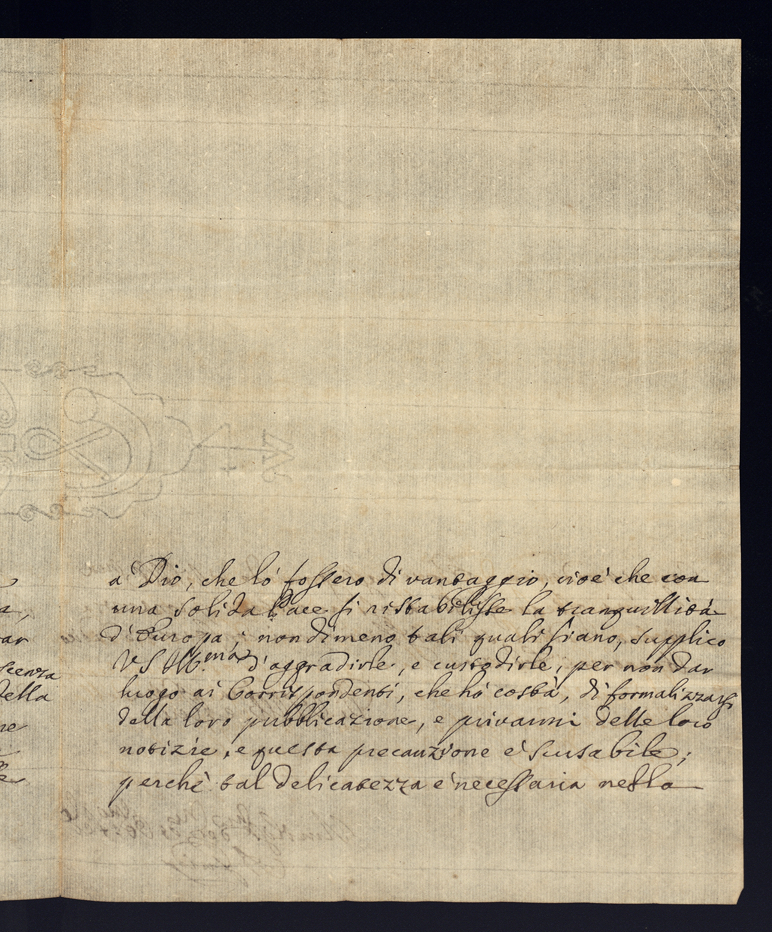 a Dio, che lo fossero di vantaggio, cioè che con
una solida Pace si ristabilisse la tranquillità
d'Europa; nondimeno tali quali siano, supplico
VS Ill.ma d'aggradirle, e custodirle, per non dar
luogo ai Corrispondenti, che hò costà, di formalizzarsi
della loro pubblicazione, e privarmi delle loro
notizie, e questa precauzione è scusabile;
perchè tal delicatezza è necessaria nella